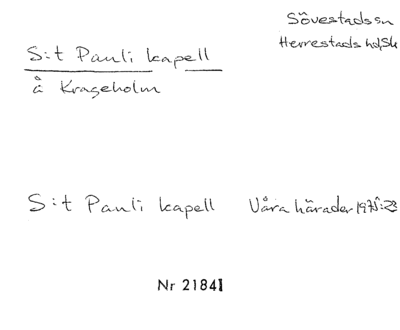 Sövestads sn
Herrestads hd, Sk
S:t Pauli kapell
å Krageholm
S:t Pauli kapell Våra härader
Nr 21841